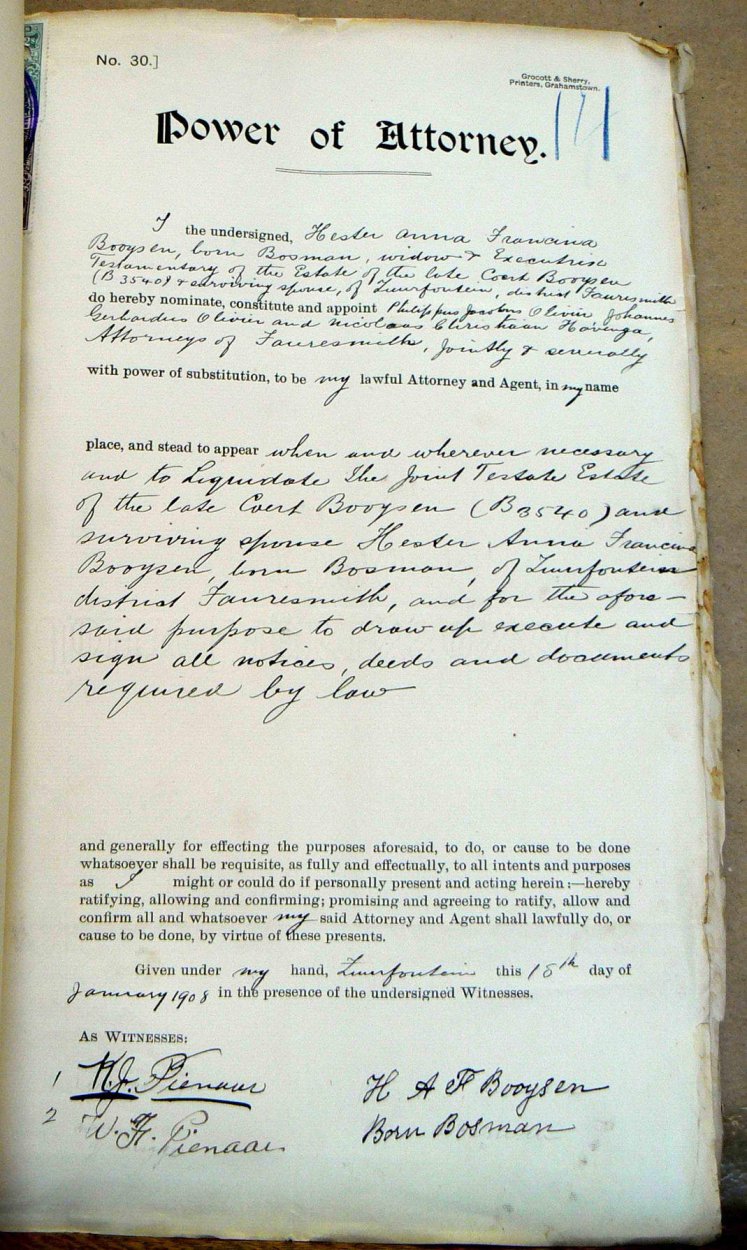 No. 30.]
Grocott & Sherry,
Printers, Grahamstown.
Power of Attorney.
I the undersigned, Hester Anna Francina
Booysen, born Bosman, widow & Executrix
Testamentary of the Estate of the late Coert Booysen
(B 3540) & surviving spouse, of Zuurfontein, district Fauresmith
do hereby nominate, constitute and appoint Philippus Jacobus Olivier Johannes
Gerhardus Olivier and Nicolaas Christiaan Havenga,
Attorneys of Fauresmith, jointly & severally
with power of substitution, to be my lawful Attorney and Agent, in my name
place, and stead to appear when and wherever necessary
and to Liquidate The Joint Testate Estate
of the late Coert Booysen (B 3540) and
surviving spouse Hester Anna Francina
Booysen, born Bosman, of Zuurfontein
district Fauresmith, and for the afore-
said purpose to draw up execute and
sign all notices, deeds and documents
required by law
and generally for effecting the purposes aforesaid, to do, or cause to be done
whatsoever shall be requisite, as fully and effectually, to all intents and purposes
as I might or could do if personally present and acting herein:—hereby
ratifying, allowing and confirming; promising and agreeing to ratify, allow and
confirm all and whatsoever my said Attorney and Agent shall lawfully do, or
cause to be done, by virtue of these presents.
Given under my hand, Zuurfontein this 18th day of
January 1908 in the presence of the undersigned Witnesses.
As Witnesses:
1 H.J. Pienaar
H A F Booysen
2 W. H. Pienaar
Born Bosman